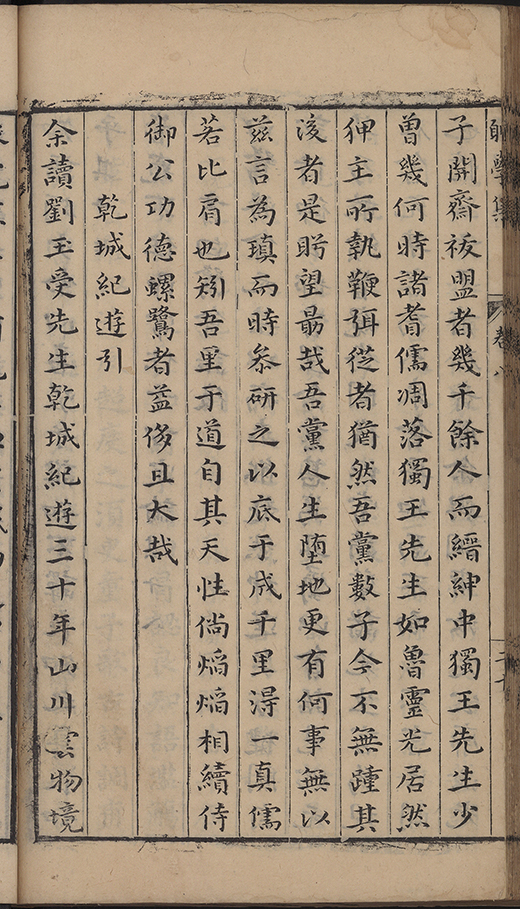 學集
卷八
子開齋祓盟者幾千餘人而縉紳中獨王先生少
曾幾何時諸耆儒凋落獨王先生如魯靈光居然
狎主所執鞭弭從者猶然吾黨數子今不無踵其
後者是所望最哉吾黨人生墮地更有何事無以
茲言為瑱而時叅研之以底于成千里得一真儒
若比肩也矧吾里于道自其天性倘熖熖相續侍
御公功德螺鷺者益侈且大哉
乾城紀遊引
余讀劉玉受先生乾城紀遊三十年山川雲物境